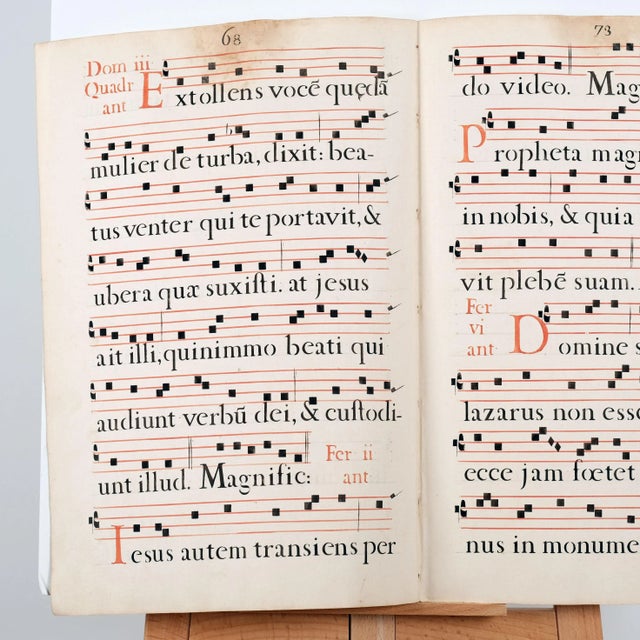 68
Dom iii
Quadr
ant
Extollens vocē quędā
mulier de turba, dixit: bea-
tus venter qui te portavit, &
ubera quæ suxiſti. at jesus
ait illi, quinimmo beati qui
audiunt verbū dei, & cuſtodi-
unt illud. Magnific:
Fer ii
ant
Iesus autem transiens per
73
do video. Mag
Propheta mag
in nobis, & quia
vit plebē suam.
Fer
vi
ant
Domine s
lazarus non esse
ecce jam fœtet
nus in monume